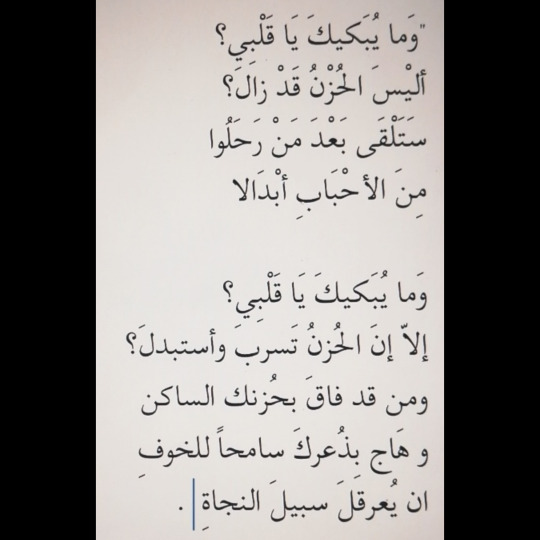 "وَما يُبَكيكَ يَا قَلْبِي؟
أليْسَ الحُزْنُ قَدْ زالَ؟
سَتَلْقَى بَعْدَ مَنْ رَحَلُوا
مِنَ الأحْبَابِ أبْدَالا
وَما يُبَكيكَ يَا قَلْبِي؟
إلاّ إنَ الحُزنُ تَسربَ وأستبدلَ؟
ومن قد فاقَ بحُزنك الساكن
و هَاج بِذُعركَ سامحاً للخوفِ
ان يُعرقلَ سبيلَ النجاةِ .